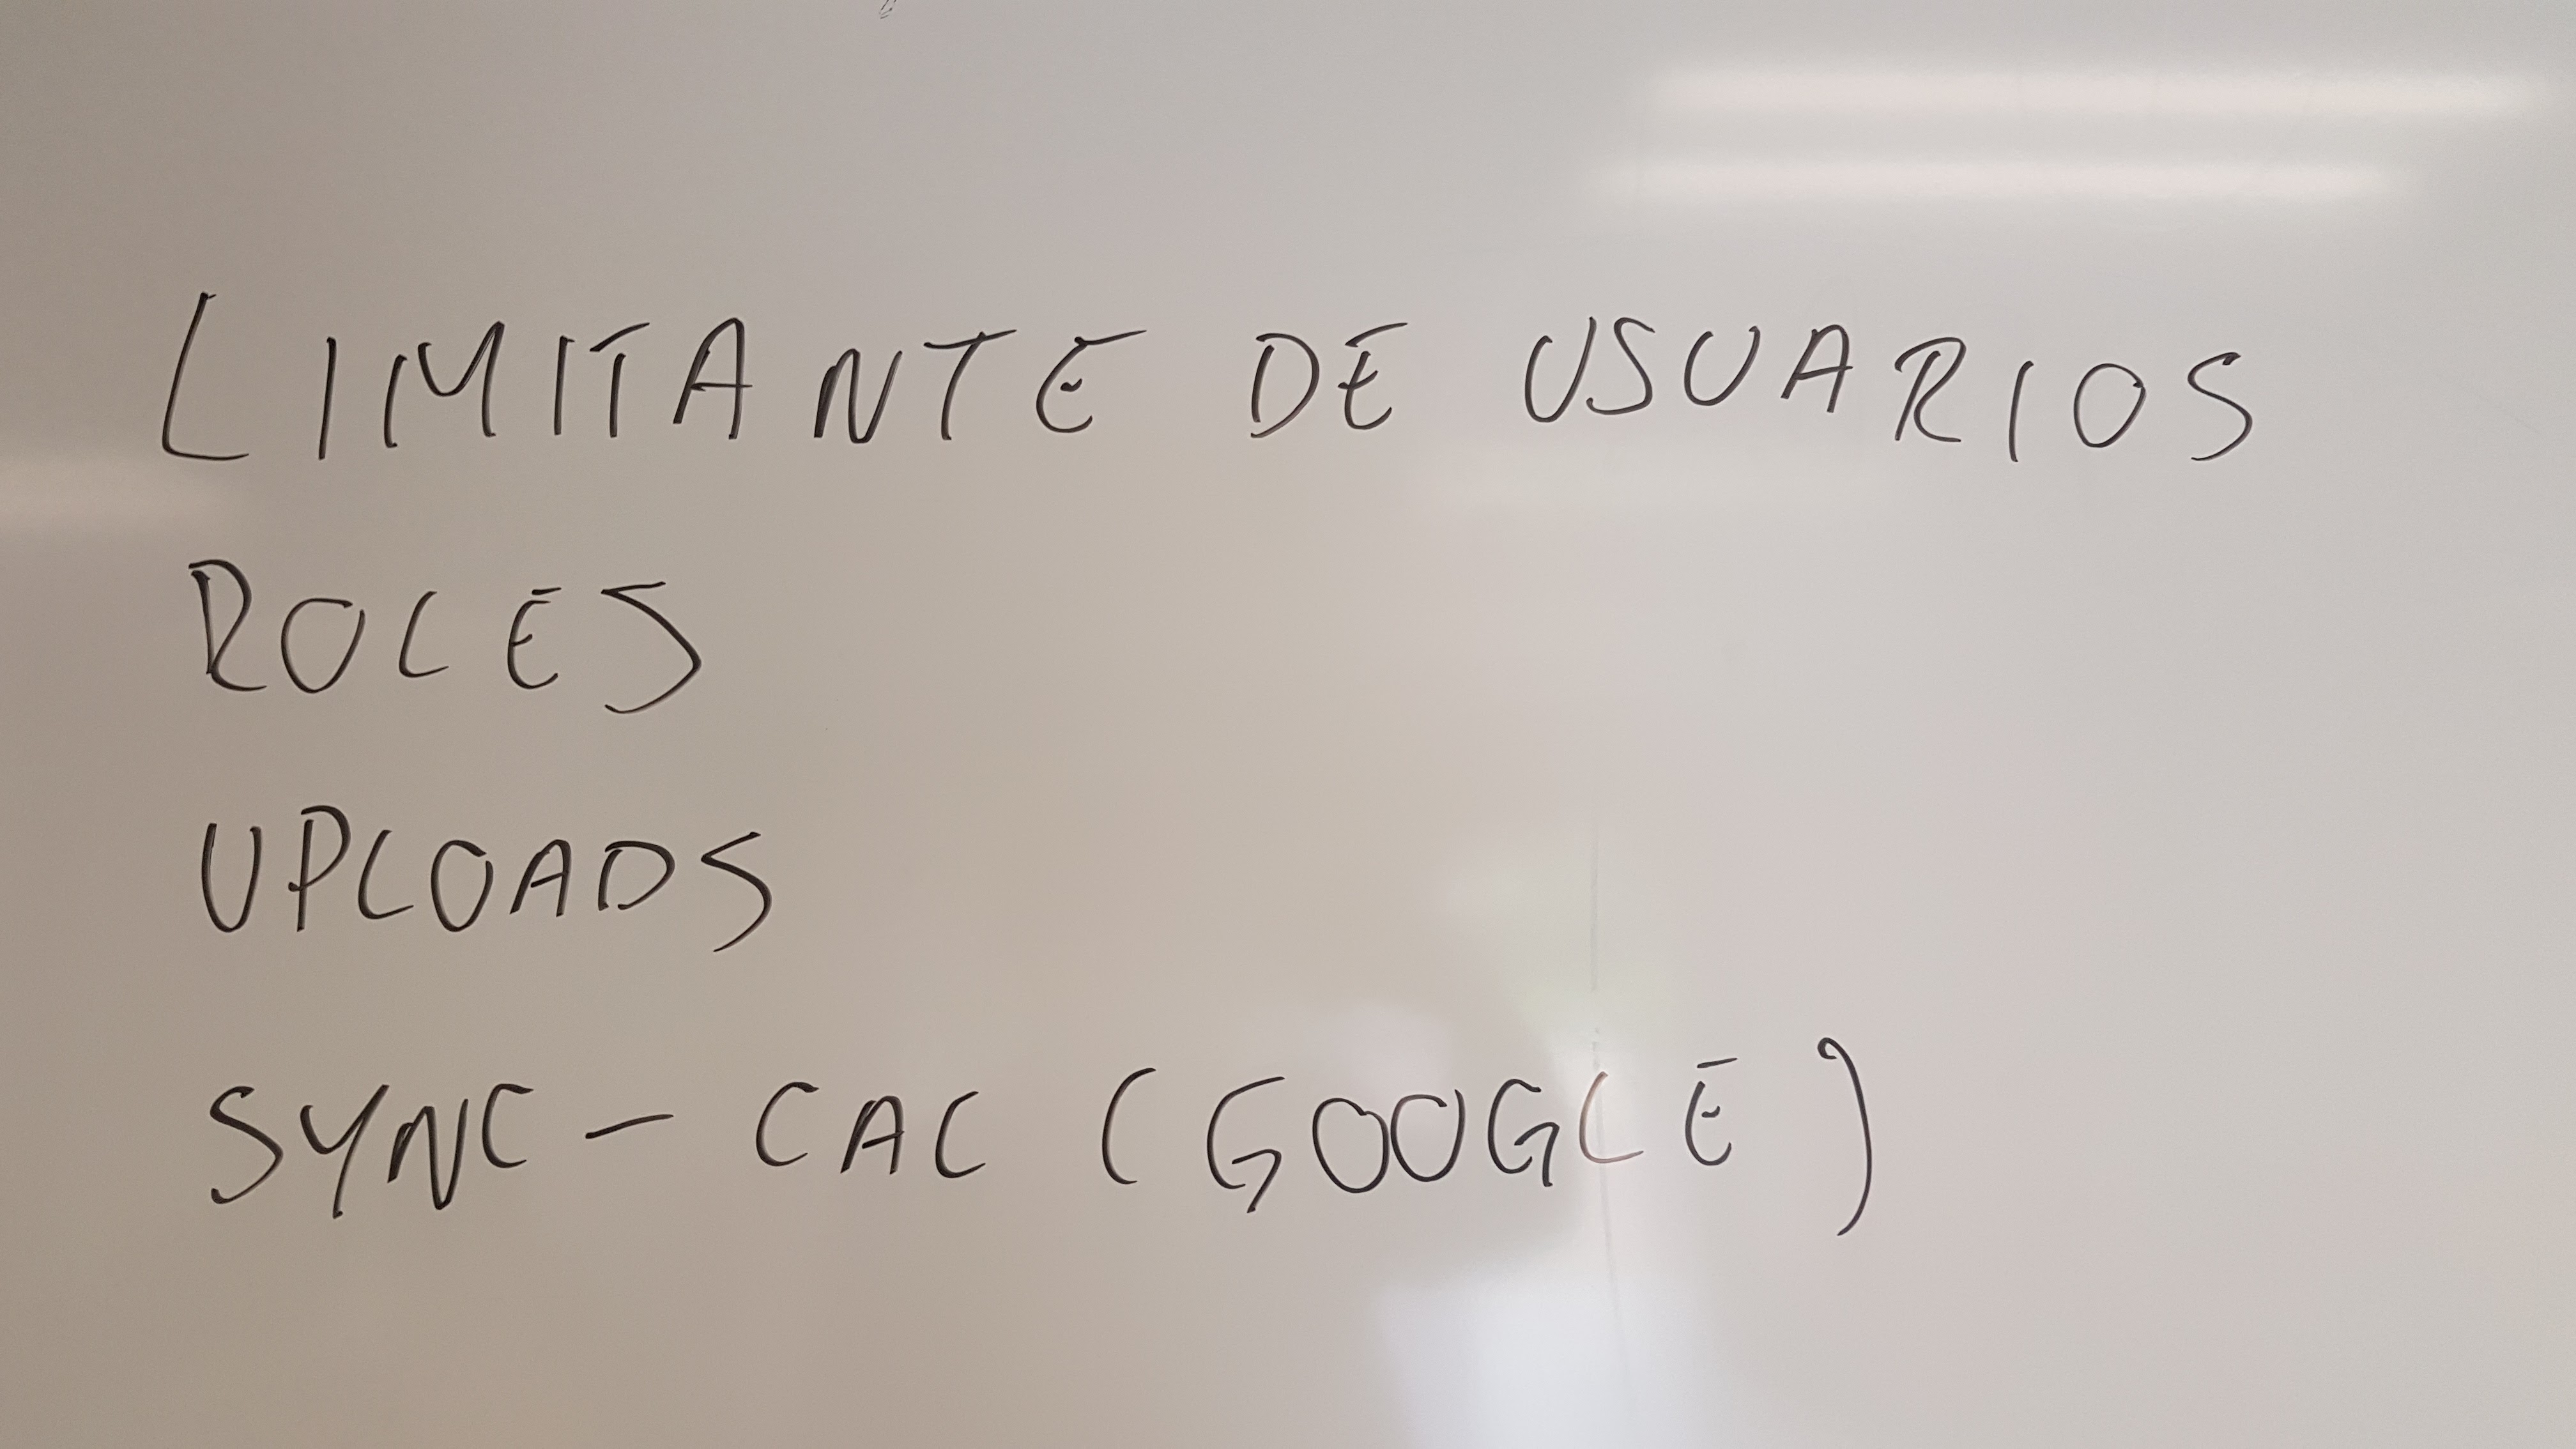 LIMITANTE DE USUARIOS
ROLES
UPLOADS
SYNC - CAL (GOOGLE)